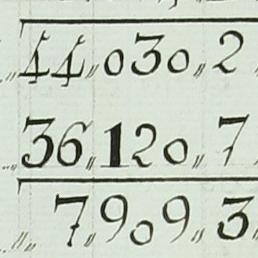 44,,030,,2
36,,120,,7
7,,909,,3